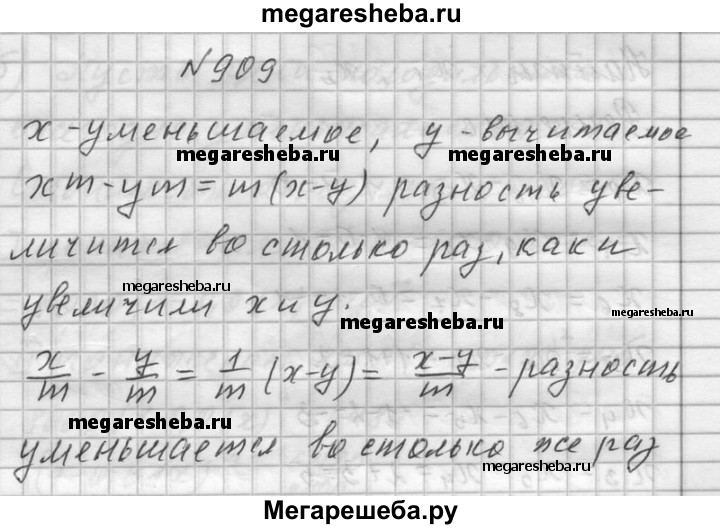 megaresheba.ru
N909
x - уменьшаемое, y - вычитаемое
megaresheba.ru megaresheba.ru
xm - ym = m(x-y) разность уве-
личится во столько раз, как и
megaresheba.ru
увеличили x и y.
megaresheba.ru
x/m - y/m = 1/m (x-y) = x-y/m - разность
megaresheba.ru
уменьшается во столько же раз
megaresheba.ru
Мегарешеба.ру